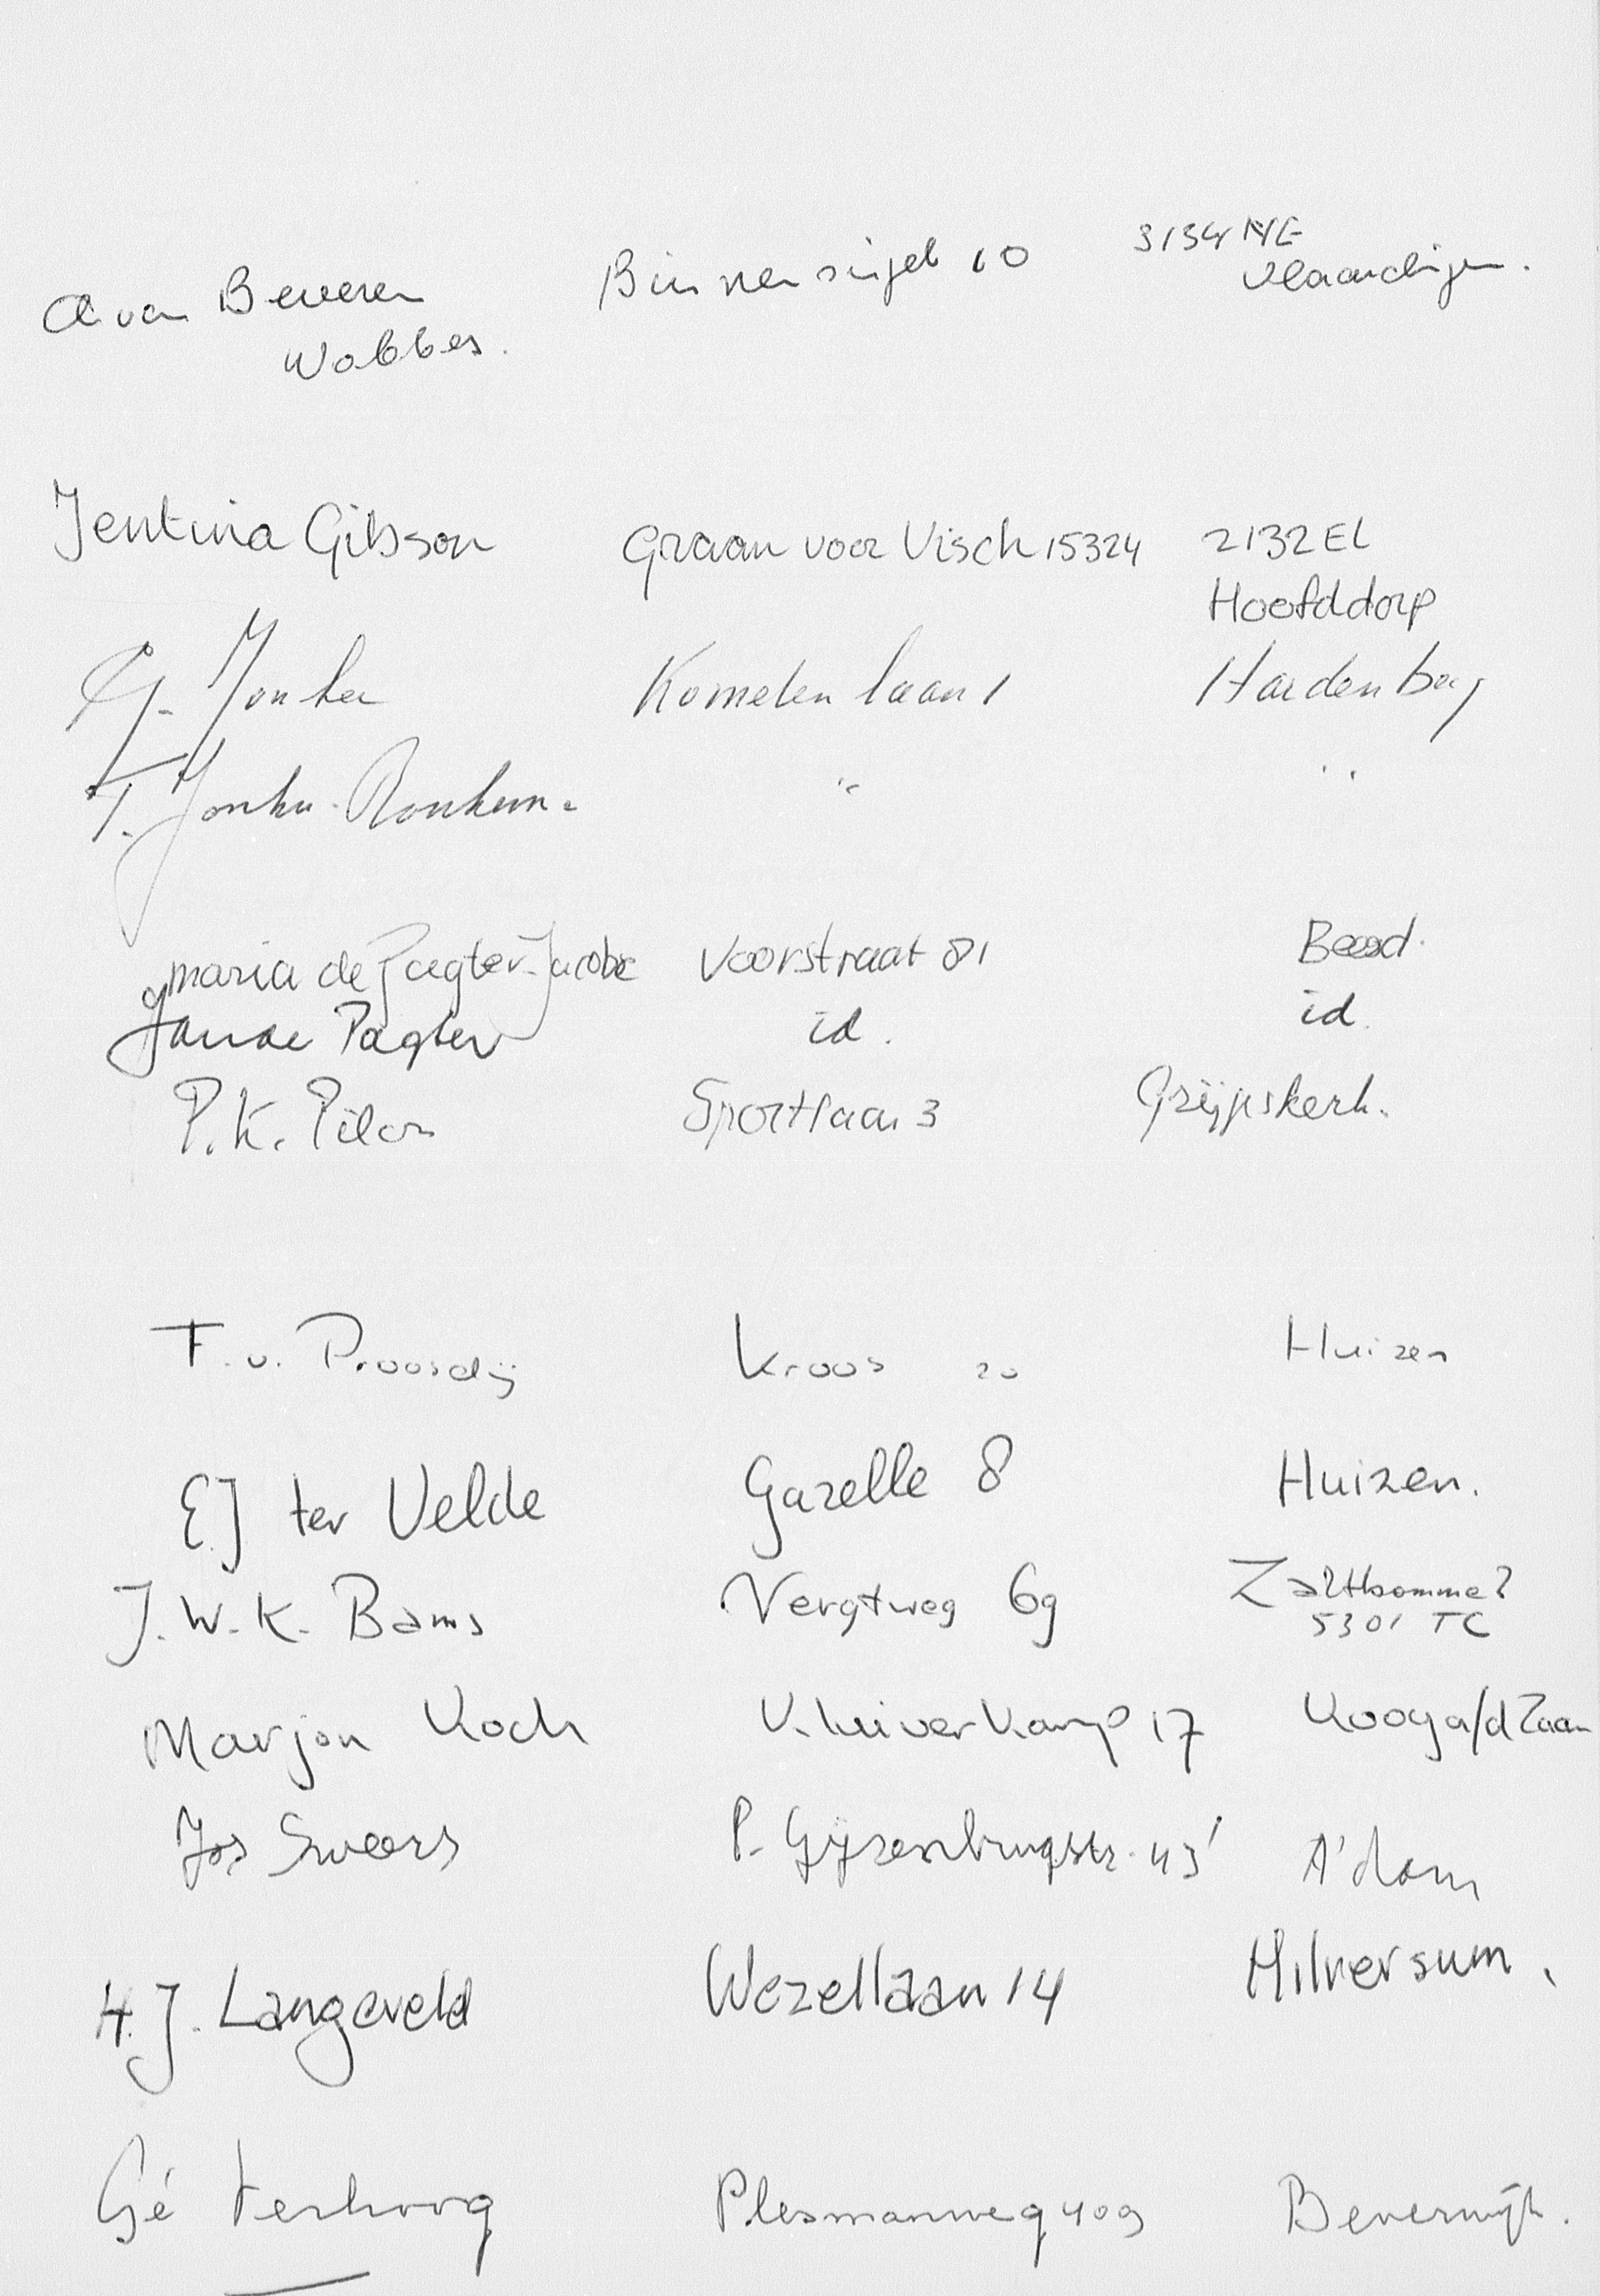 A van Beveren Binnensingel 10 3134 NE
Wobbes. Vlaardingen.
Jentina Gibson Graan voor Visch 15324 2132 EL
Hoofddorp
G. Jonker Kometenlaan 1 Hardenberg
T. Jonker-Ronken. " "
Maria de Pagter-Jacobse Voorstraat 81
Jan de Pagter id. id.
P.K. Pilon Sportlaan 3 Grijpskerk.
F. v. Proosdij Kroos 20 Huizen
EJ ter Velde Gazelle 8 Huizen.
J.W.K. Bams Vergtweg 69 Zaltbommel
5301 TC
Marjon Koch Kluiverkamp 17 Koog a/d Zaan
Jos Sweers P. Gijzenbrugstr. 43' A'dam
H.J. Langeveld Wezellaan 14 Hilversum.
Gé Terhoog Plesmanweg 409 Beverwijk.